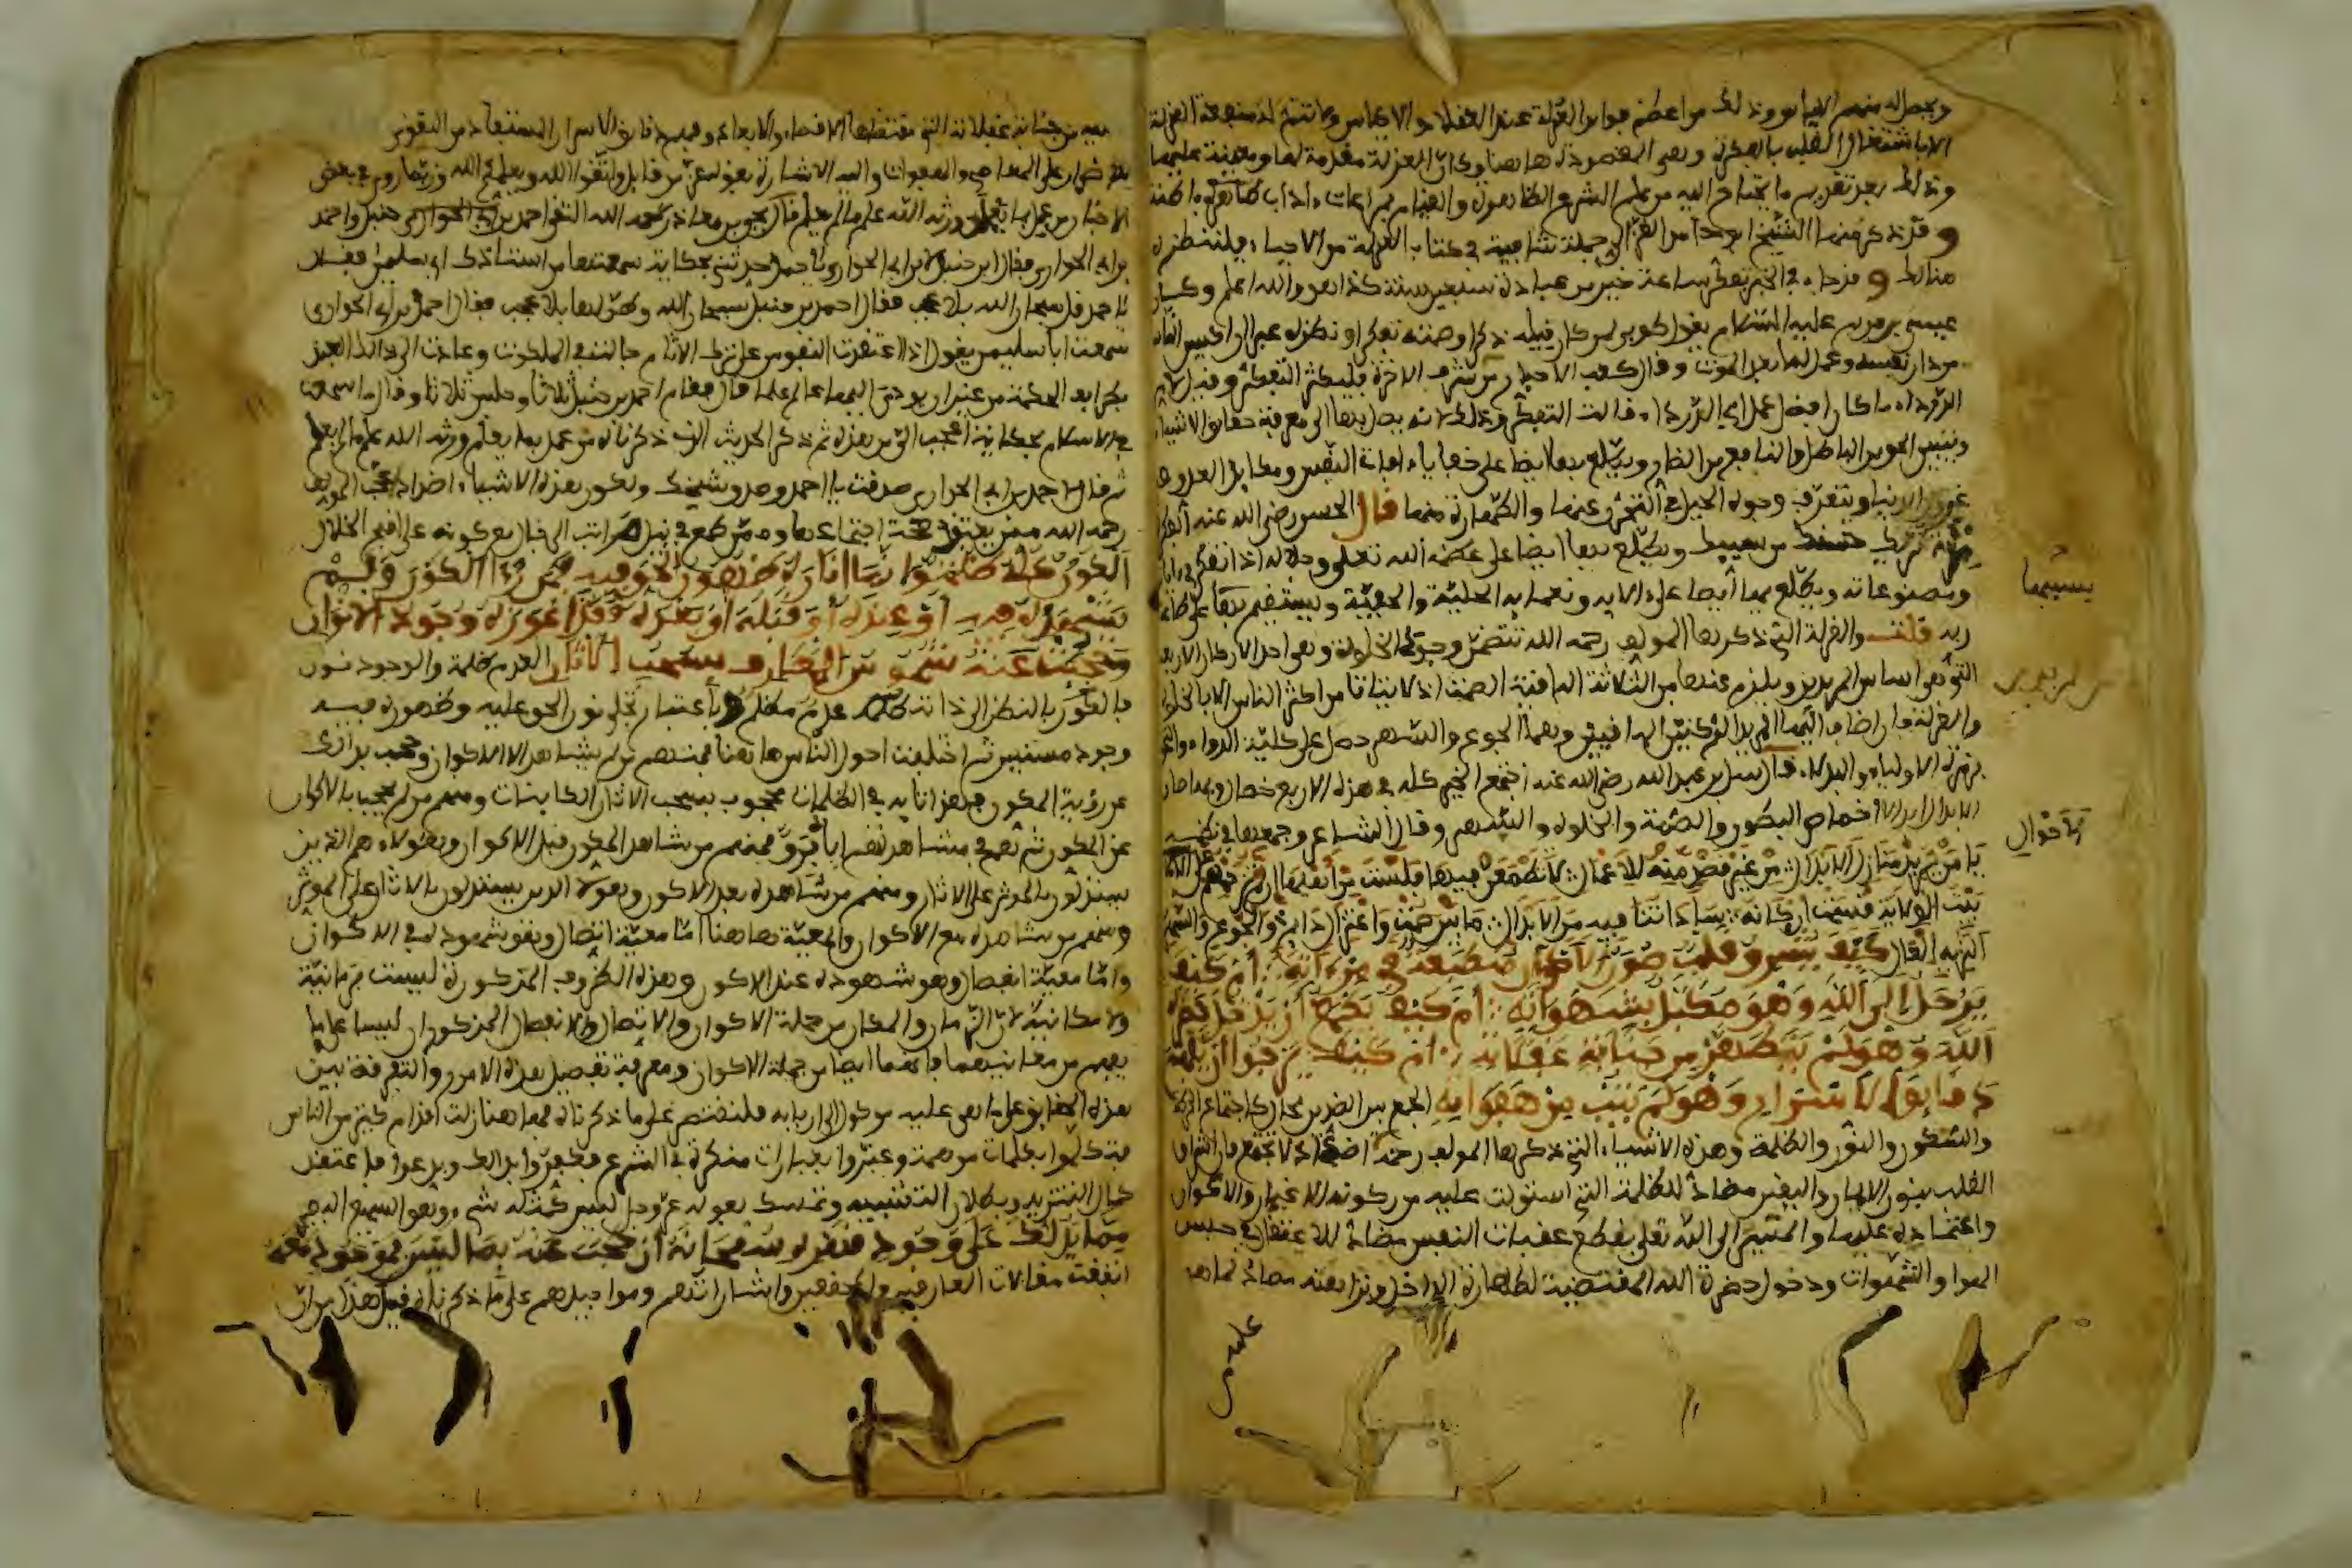 ويحصل له منهم الاياس وذلك من اعظم فوايد العزلة عند العقلاء والاكياس ولا تتم له منفعة العزلة
الا باشتغال القلب بالفكرة وهي المقصودة هاهنا وكان العزلة مقدمة لها ومعينة عليها
وذلك بعد تقديم ما يحتاج اليه من علم الشرع الظاهر والقيام بمراعات ءاداب ظاهرة وباطنة
وقد ذكر منها الشيخ ابو حامد الغزالي جملة شافية في كتاب العزلة من الاحياء فلتنظر
هنالك وقد جاء في الخبر تفكر ساعة خير من عبادة سبعين سنة كذا هو والله اعلم وكان
عيسى بن مريم عليه السلام يقول طوبى لمن كان قيله ذكرا وصمته تفكرا ونظره عبرا ان اكيس الناس
من دان نفسه وعمل لما بعد الموت وقال كعب الاحبار من شرف الاخرة فليكثر التفكر وقيل لام
الدرداء ما كان افضل عمل ابي الدرداء قالت التفكر وذلك لانه يصل بها الى معرفة حقائق الاشياء
وتبيين الحق من الباطل والنافع من الضار ويطلع بها ايضا على خفايا ءافات النفس ومكايد العدو و
غرور الدنيا ويتعرف وجوه الحيل في التحرز عنها والطهارة منها قال الحسن رضي الله عنه الفكرة
مرءاة تريك حسنك من سيئك ويطلع بها ايضا على عظمة الله تعلى وجلاله اذا تفكر في ءاياته
ومصنوعاته ويطلع بها ايضا على ءالائه ونعمائه الجلية والخفية ويستفيد بها
ربه قلت والعزلة التي ذكرها المولف رحمه الله تتضمن وجود الخلوة وهي احد الاركان الاربعة
التي هي اساس المريدين ويلزم عنها من الثلاثة الباقية الصمت اذ لا يتاتى من اكثر الناس الا بالخلوة
والعزلة فان اضاف اليها المريد الركنين الباقيين وهما الجوع والسهر حصل على كلية الدواء والتحق
بزمرة الاولياء والبدلاء قال سهل بن عبد الله رضي الله عنه اجتمع الخير كله في هذه الاربع خصال وبها صار
الابدال ابدالا اخماص البطون والصمت والخلوة والسهر وقال الشاعر وجمعها في نظمه
يا من يريد منازل الابدال من غير قصد منه للاعمال لا تطمعن فيها فلست من اهلها ان لم تزاحمهم على الاحوال
بيت الولاية قسمت اركانه ساداتنا فيه من الابدال ما بين صمت واعتزال دايم والجوع والسهر
النزيه الغال كيف يشرق قلب صور الاكوان منطبعة في مرءاته ام كيف
يرحل الى الله وهو مكبل بشهواته ام كيف يطمع ان يدخل حضرة
الله وهو لم يتطهر من جنابة غفلاته ام كيف يرجوا ان يفهم
دقايق الاسرار وهو لم يتب من هفواته الجمع بين الضدين محال كاجتماع الحركة
والسكون والنور والظلمة وهذه الاشياء التي ذكرها المولف رحمه الله اضداد لا تجتمع فان اشراق
القلب بنور الايمان واليقين مضاد للظلمة التي استولت عليه من ركونه للاغيار والاكوان
واعتماده عليها والمسير الى الله تعلى بقطع عقبات النفس مضاد للاعتقال في حبس
الهوا والشهوات ودخول حضرة الله المقتضية لطهارة الداخل ونزاهته مضاد لما هو
عليه من
يستبينها
الاحوال
عليه من جنابة غفلاته التي مقتضاها الاقصاء والابعاد وفهم دقايق الاسرار المستفاد من التقوى
مضاد للاصرار على المعاصي والهفوات واليه الاشارة بقوله عز من قايل واتقوا الله ويعلمكم الله وربما روي في بعض
الاخبار من عمل بما يعلم ورثه الله علم ما لم يعلم
بن ابي الحواري فقال ابن حنبل لابن ابي الحواري يا احمد حدثني بحكاية سمعتها من استاذك ابي سليمن فقال
يا احمد قل سبحان الله بلا عجب فقال احمد بن حنبل سبحان الله وطولها بلا عجب فقال احمد بن ابي الحواري
سمعت ابا سليمن يقول اذا اعتقدت النفوس على ترك الاثام جالت في الملكوت وعادت الى ذلك العبد
بطرايف الحكمة من غير ان يودي اليها عالم علما قال فقام احمد بن حنبل ثلاثا وجلس ثلاثا وقال ما سمعت
في الاسلام بحكاية اعجب الي من هذه ثم ذكر الحديث الذي ذكرناه من عمل بما يعلم ورثه الله علم ما لم يعلم
ثم قال لاحمد بن ابي الحواري صدقت يا احمد وصدق شيخك ولكون هذه الاشياء اضدادا عجب المولف
رحمه الله ممن يعتقد صحة اجتماعها وممن طمع في نيل مراتب الرجال مع كونه على اقبح الخلال
الكون كله ظلمة وانما اناره ظهور الحق فيه فمن رءا الكون ولم
يشهده فيه او عنده او قبله او بعده فقد اعوزه وجود الانوار
وحجبت عنه شموس المعارف بسحب الاثار العدم ظلمة والوجود نور
فالكون بالنظر الى ذاته عدم مظلم وباعتبار تجلي نور الحق عليه وظهوره فيه
وجود مستنير ثم اختلفت احوال الناس هاهنا فمنهم من لم يشاهد الا الاكوان وحجب بذلك
عن رؤية المكون فهذا تايه في الظلمات محجوب بسحب الاثار الكاينات ومنهم من لم يحجب بالاكوان
عن المكون ثم هم في مشاهدتهم اياه فرق فمنهم من شاهد المكون قبل الاكوان وهولاء هم الذين
يستدلون بالموثر على الاثار ومنهم من شاهده بعد الاكوان وهولاء الذين يستدلون بالاثار على الموثر
ومنهم من شاهده مع الاكوان والمعية هاهنا اما معية اتصال وهو شهوده في الاكوان
واما معية انفصال وهو شهوده عند الاكوان وهذه الظروف المذكورة ليست بزمانية
ولا مكانية لان الزمان والمكان من جملة الاكوان والاتصال والانفصال المذكوران ليسا على ما
يفهم من معانيهما فانهما ايضا من جملة الاكوان ومعرفة تفصيل هذه الامور والتفرقة بين
هذه الحقايق على ما هي عليه موكول الى اربابه فلنقتصر على ما ذكرناه فهاهنا زلت اقدام كثير من الناس
فتكلموا بكلمات موهمة وعبروا بعبارات منكرة في الشرع فكفروا بذلك وبدعوا فاعتقد
كمال التنزيه وبطلان التشبيه وتمسك بقوله عز وجل ليس كمثله شيء وهو السميع البصير
مما يدلك على وجود قهره سبحانه ان حجبك عنه بما ليس بموجود معه
اتفقت مقالات العارفين والمحققين واشاراتهم ومواجيدهم على ما ذكرناه قبل هذا من ان